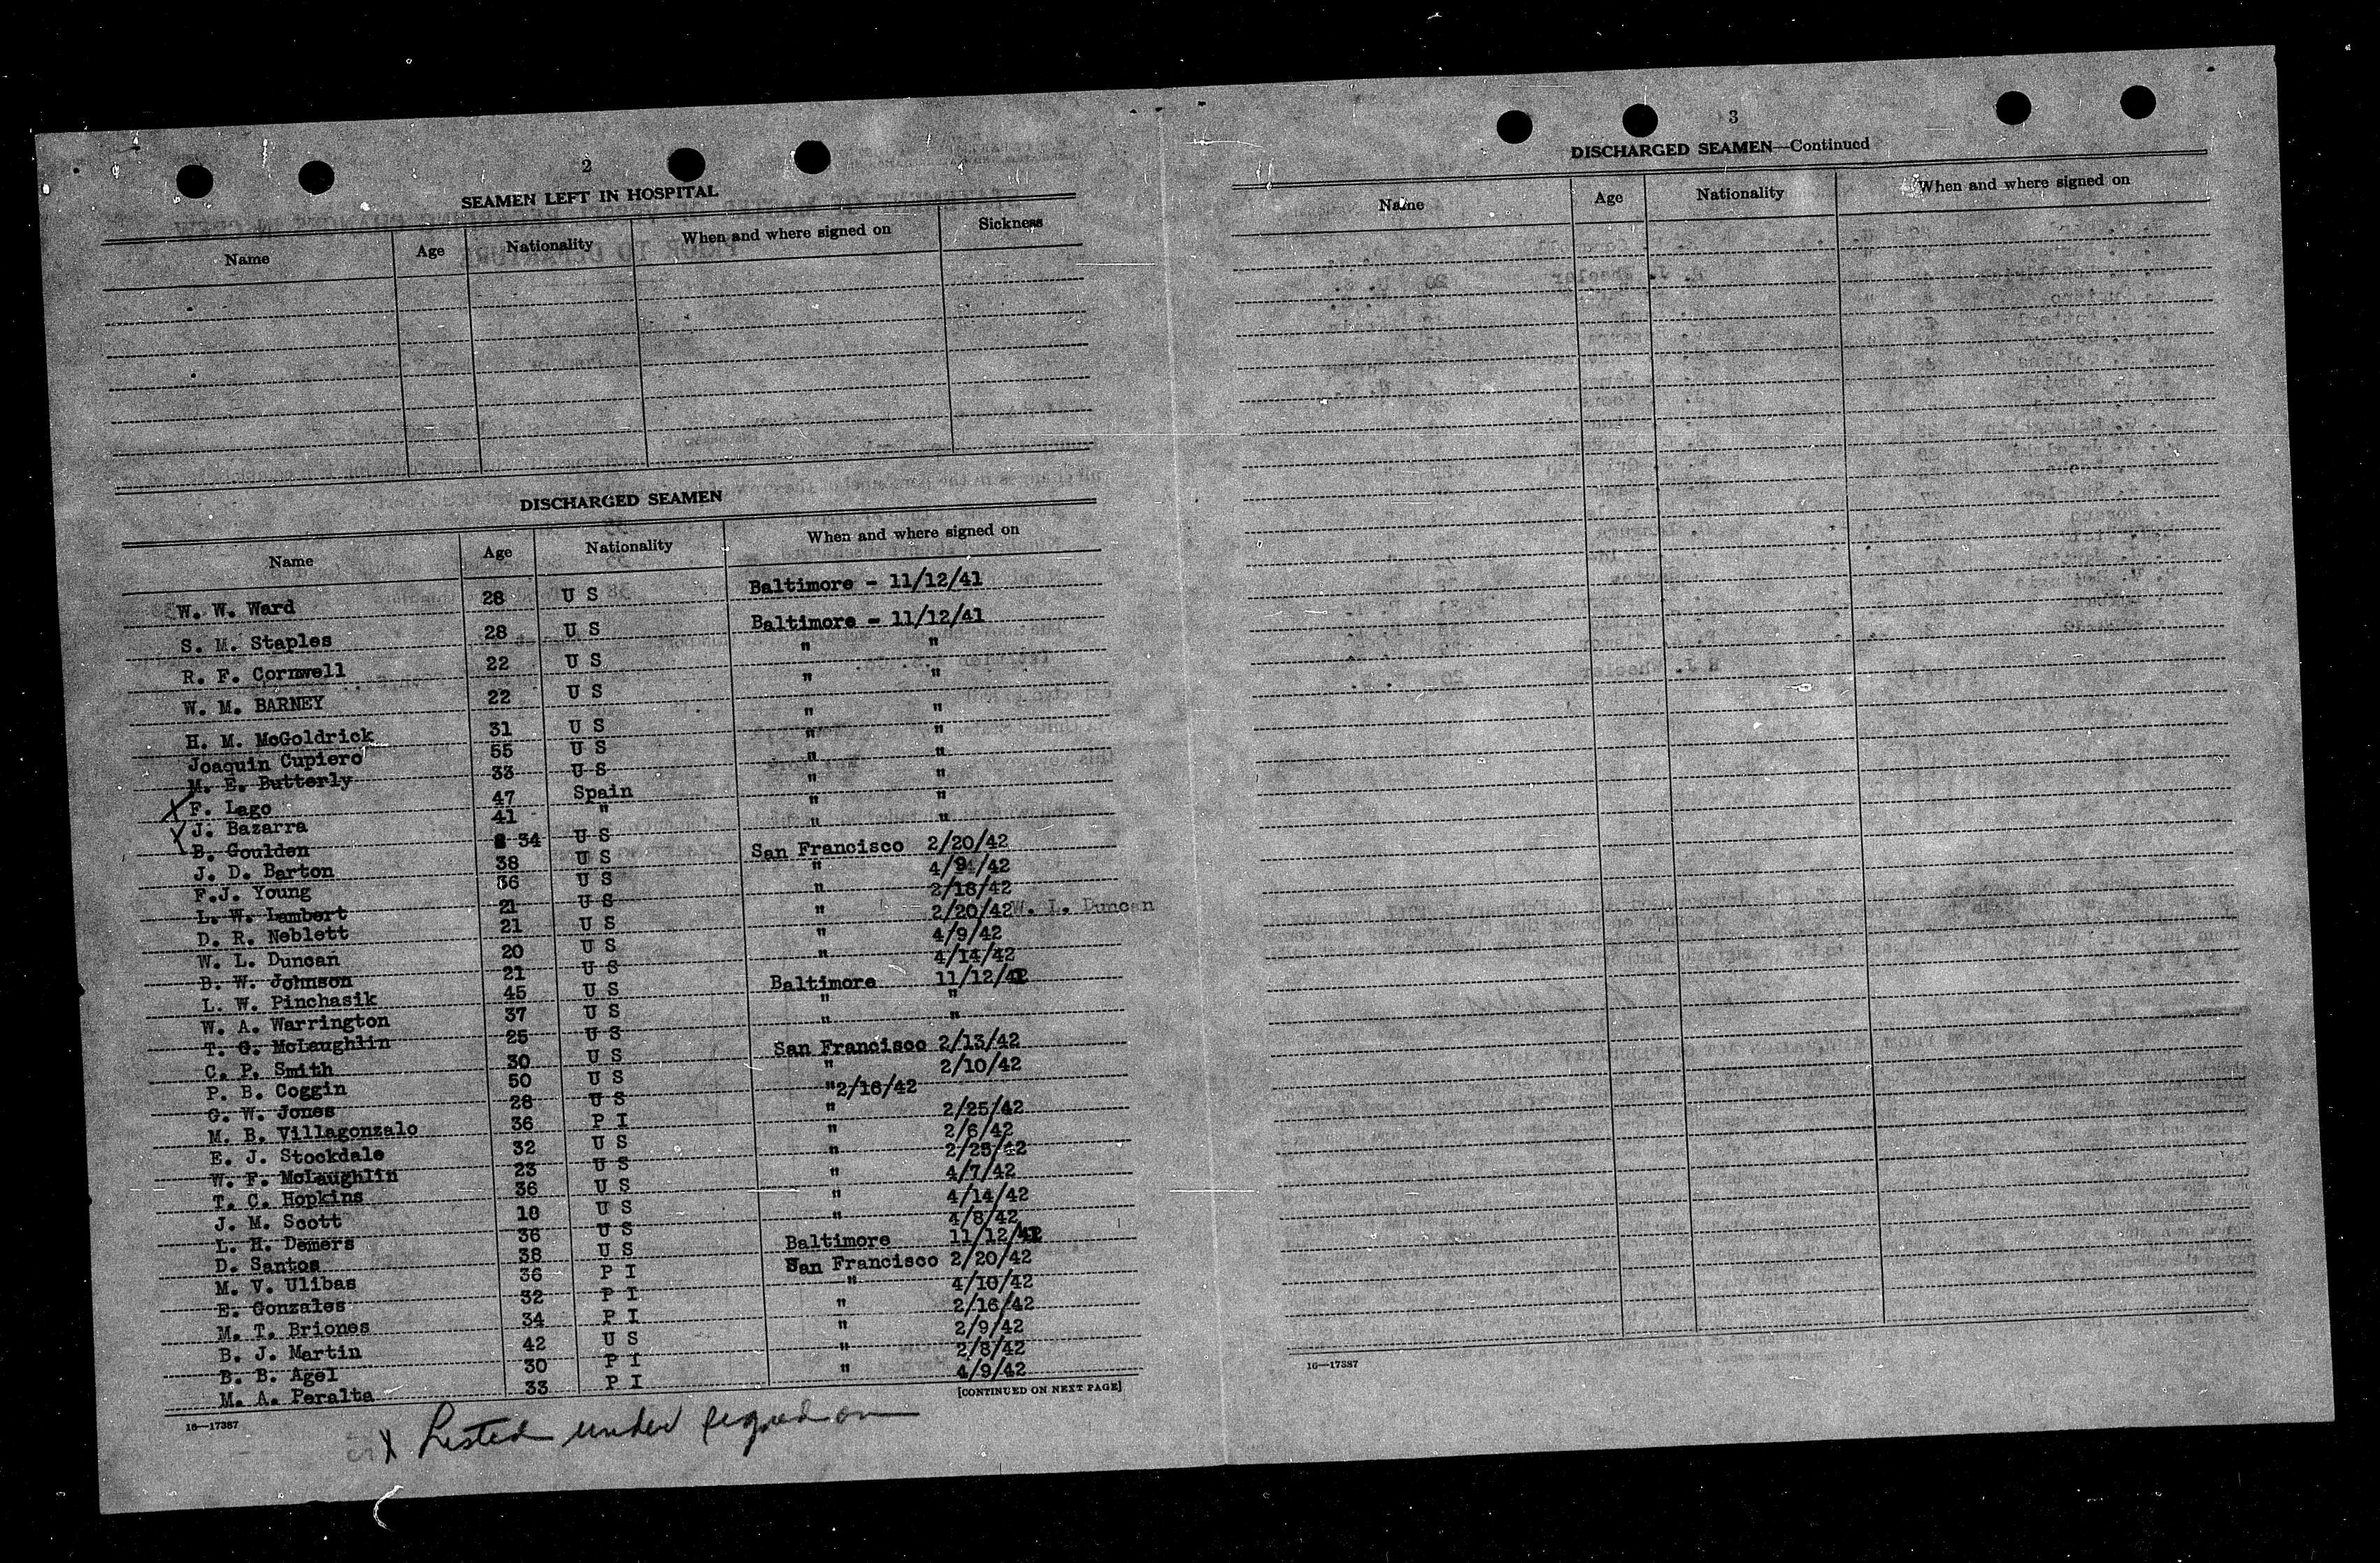 2
SEAMEN LEFT IN HOSPITAL
Name Age Nationality When and where signed on Sickness
DISCHARGED SEAMEN
Name Age Nationality When and where signed on
W. W. Ward 28 U S Baltimore - 11/12/41
S. M. Staples 28 U S Baltimore - 11/12/41
R. F. Cornwell 22 U S " "
W. M. BARNEY 22 U S " "
H. M. McGoldrick 31 U S " "
Joaquin Cupiero 55 U S " "
M. E. Butterly 33 U S " "
X F. Lago 47 Spain " "
X J. Bazarra 41 " " "
B. Goulden 34 U S " "
J. D. Barton 38 U S San Francisco 2/20/42
F.J. Young 36 U S " 4/9/42
L. W. Lambert 21 U S " 2/18/42
D. R. Neblett 21 U S " 2/20/42 W. L. Duncan
W. L. Duncan 20 U S " 4/9/42
B. W. Johnson 21 U S " 4/14/42
L. W. Pinchasik 45 U S Baltimore 11/12/41
W. A. Warrington 37 U S " "
T. G. McLaughlin 25 U S " "
C. P. Smith 30 U S San Francisco 2/13/42
P. B. Coggin 50 U S " 2/10/42
G. W. Jones 28 U S "2/18/42
M. B. Villagonzalo 36 P I " 2/25/42
E. J. Stockdale 32 U S " 2/6/42
W. F. McLaughlin 23 U S " 2/25/42
T. C. Hopkins 36 U S " 4/7/42
J. M. Scott 18 U S " 4/14/42
L. H. Demers 36 U S " 4/8/42
D. Santos 38 U S Baltimore 11/12/41
M. V. Ulibas 36 P I San Francisco 2/20/42
E. Gonzales 32 P I " 4/10/42
M. T. Briones 34 P I " 2/16/42
B. J. Martin 42 U S " 2/9/42
B. B. Agel 30 P I " 2/8/42
M. A. Peralta 33 P I " 4/9/42
16—17387 [CONTINUED ON NEXT PAGE]
X Listed under signed on
3
DISCHARGED SEAMEN—Continued
Name Age Nationality When and where signed on
16—17387